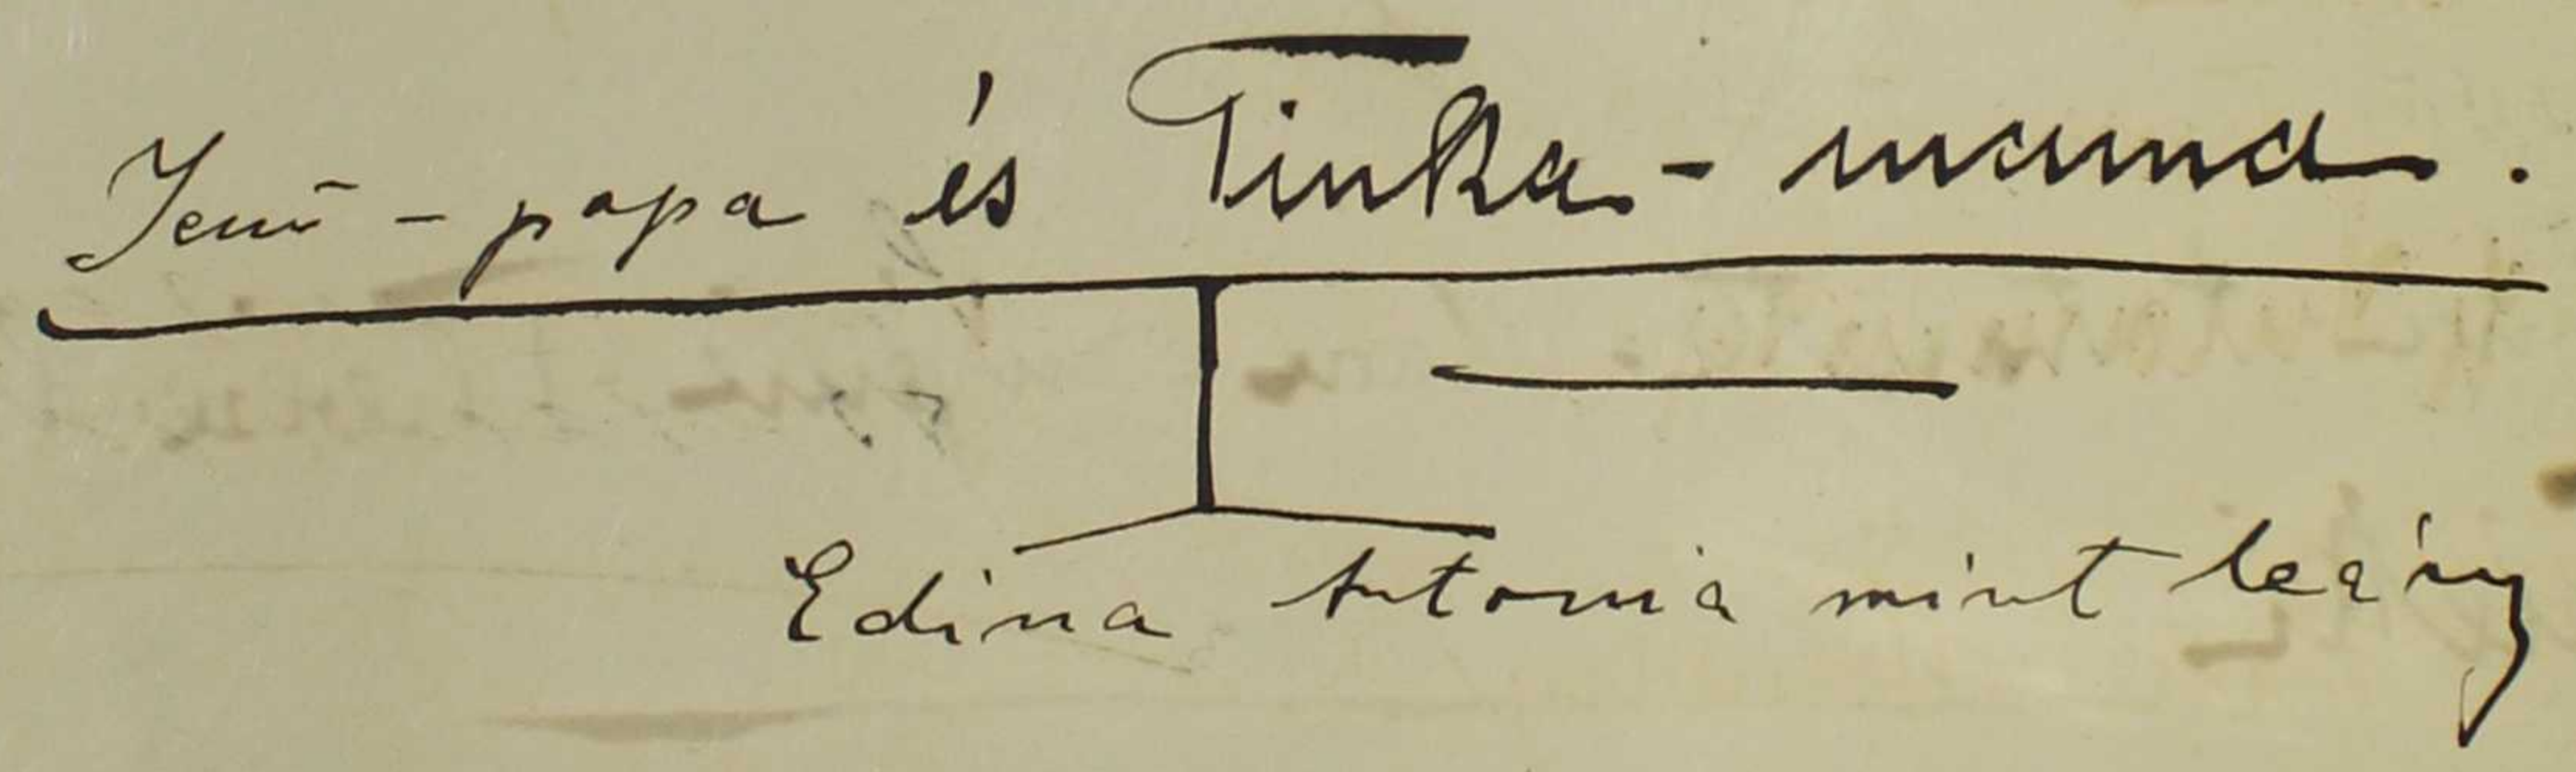 Jenő - papa és Tinka - mama.
Edina Antonia mint leány